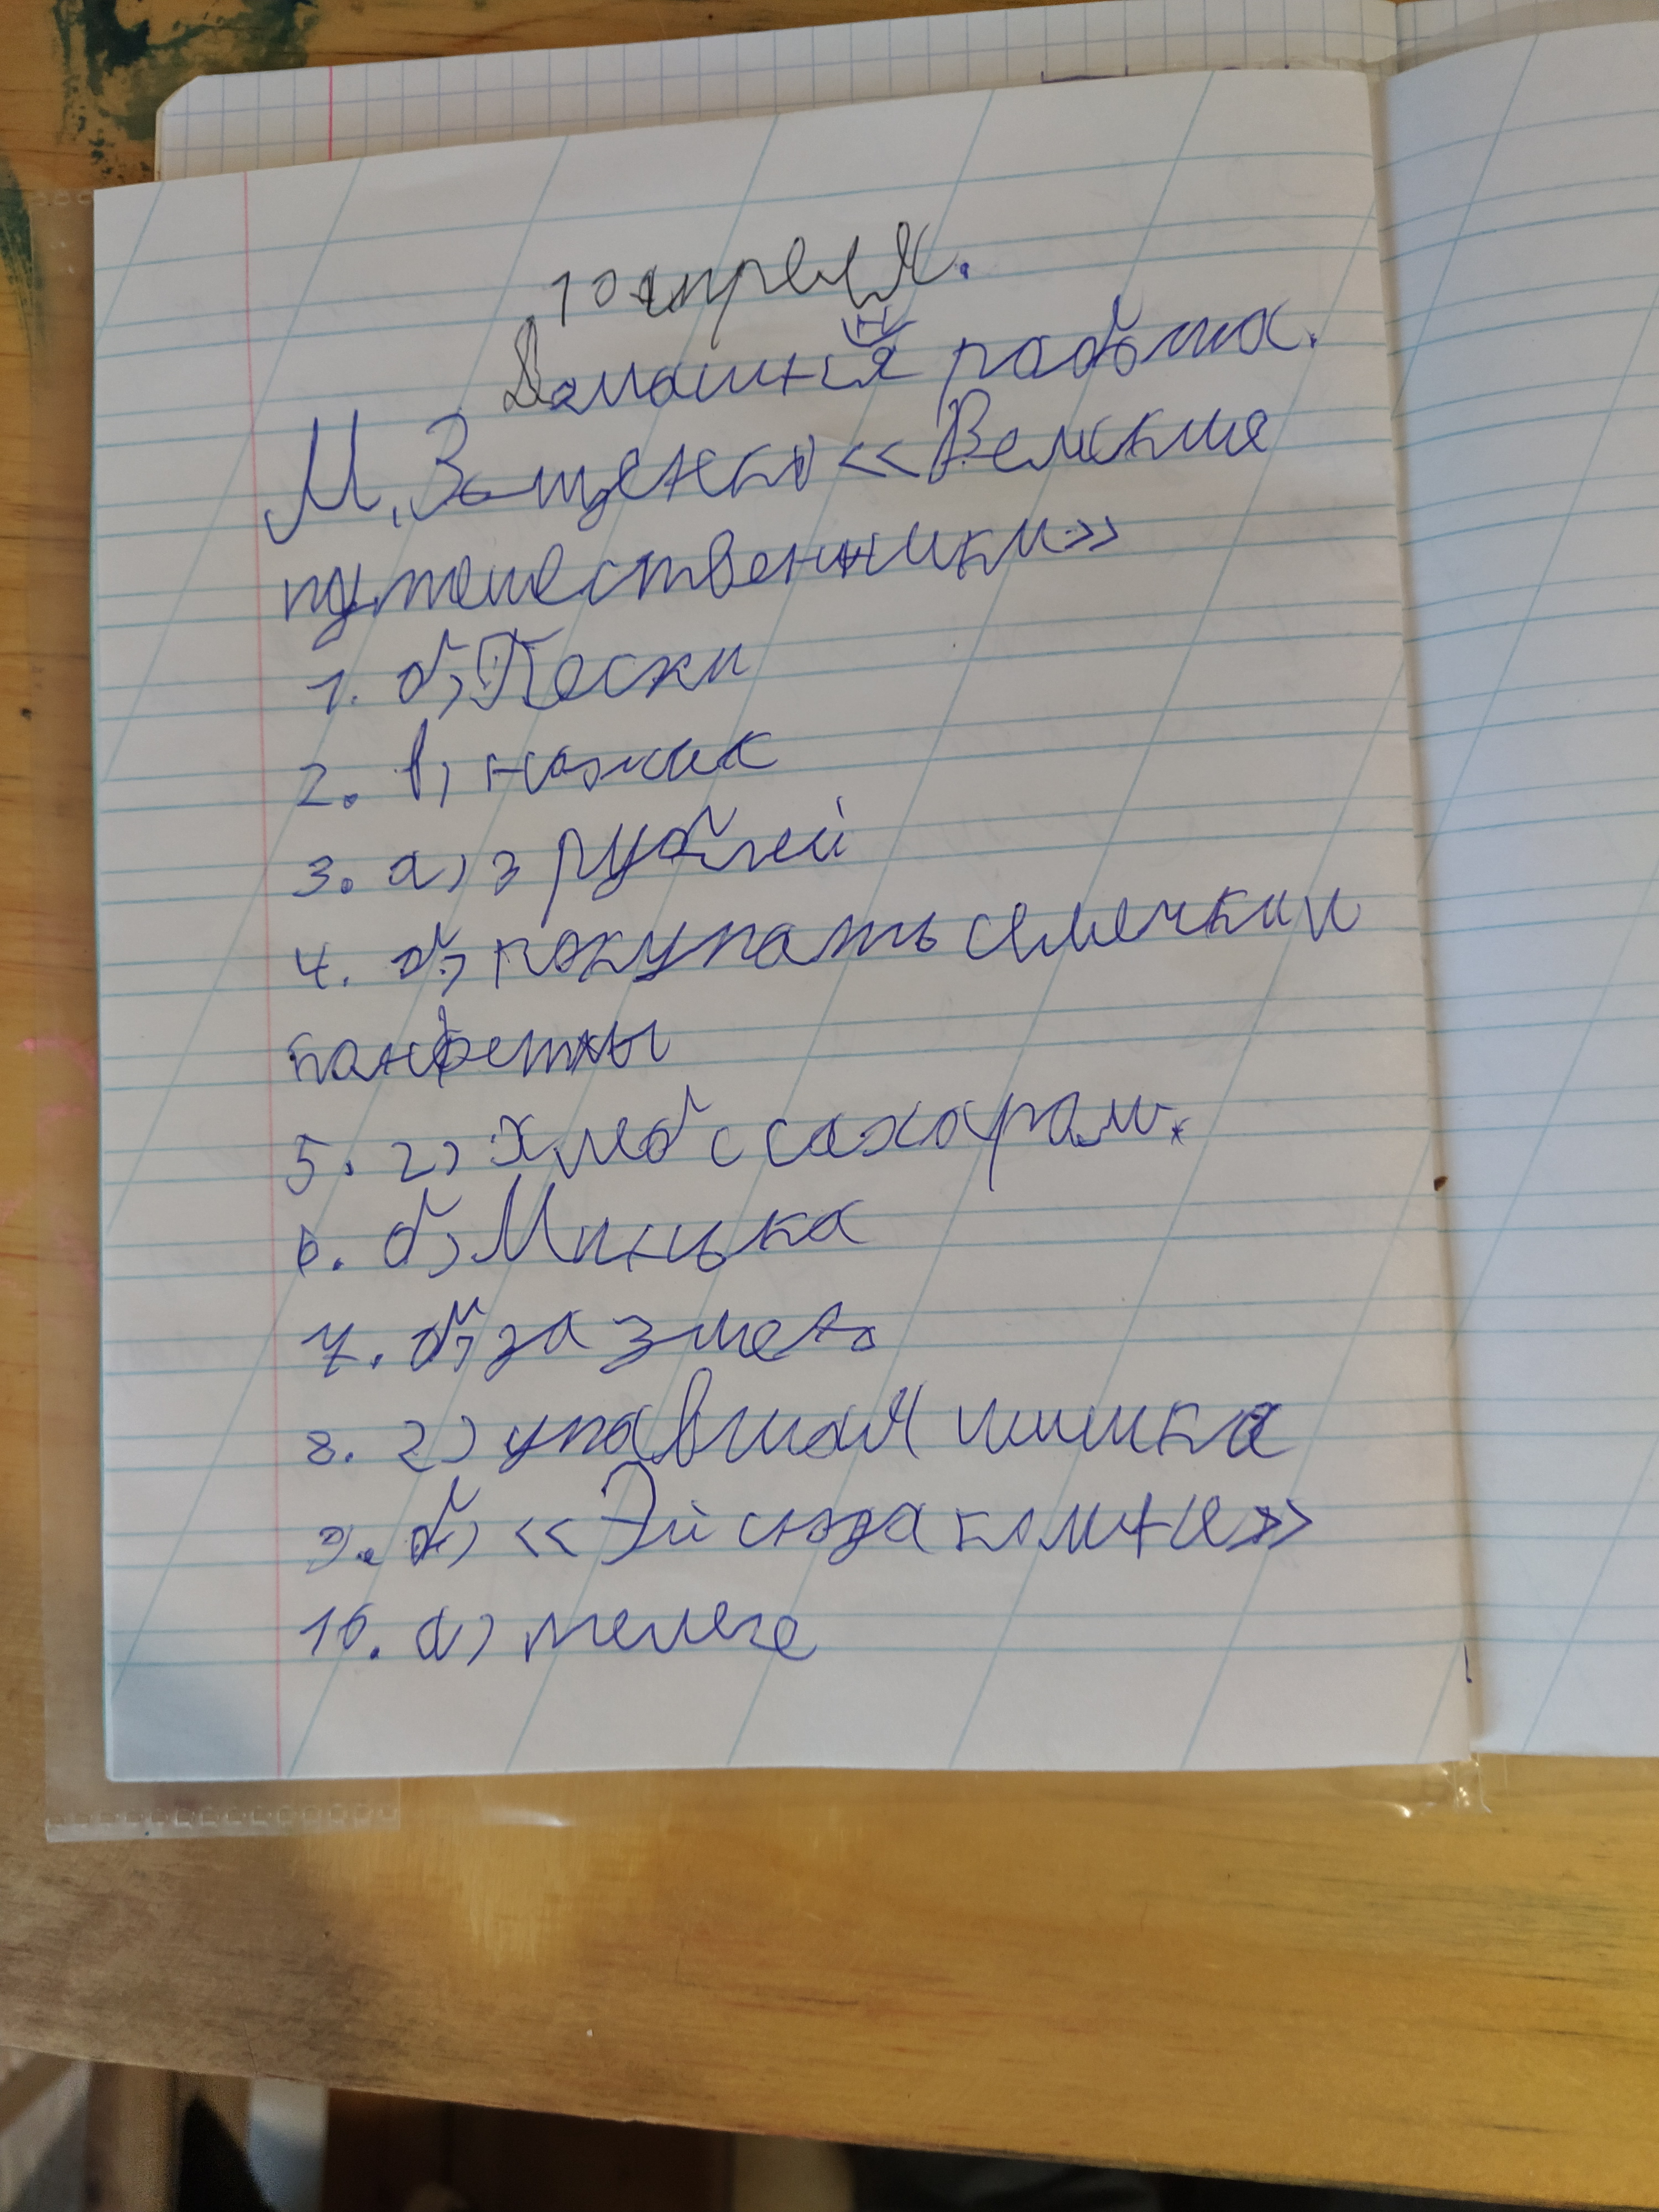 10 апреля.
Домашняя работа.
М. Зощенко «Великие
путешественники»
1. б) Пески
2. в) ножик
3. а) 3 рублей
4. б) покупать семечки и
конфеты
5. г) хлеб с сахарам.
6. б) Минька
7. б) за змею
8. г) упавшая шишка
9. б) «Эй сюда ко мне»
10. а) телеге